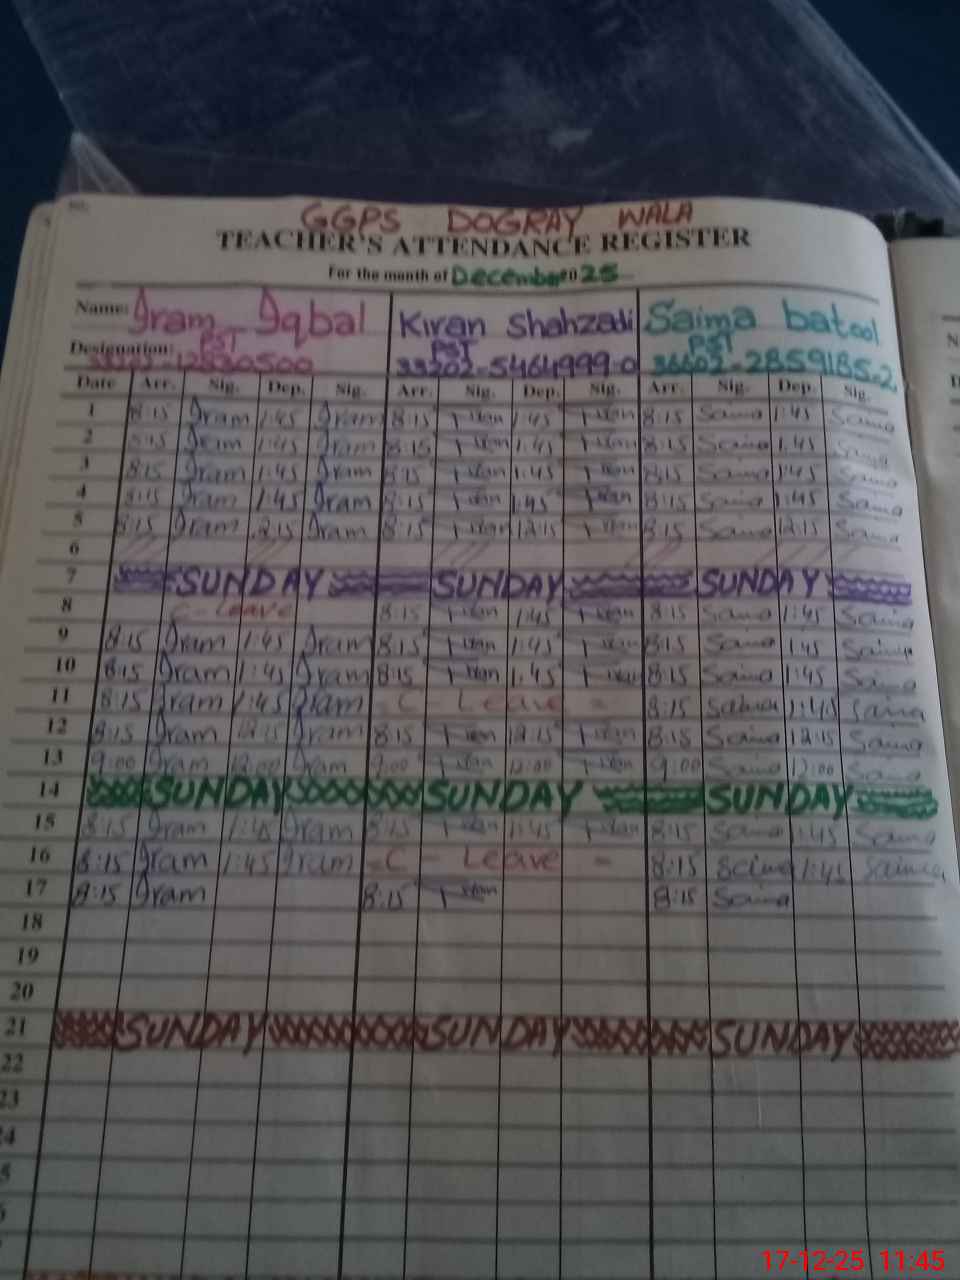 GGPS DOGRAY WALA
TEACHER'S ATTENDANCE REGISTER
For the month of December 2025
Name: Iram Iqbal Kiran Shahzadi Saima batool
Designation: PST PST PST
33202-5464999-0 36602-2859185-2
Date Arr. Sig. Dep. Sig. Arr. Sig. Dep. Sig. Arr. Sig. Dep. Sig.
1 8:15 Iram 1:45 Iram 8:15 1:45 8:15 Saima 1:45 Saima
2 8:15 Iram 1:45 Iram 8:15 1:45 8:15 Saima 1:45 Saima
3 8:15 Iram 1:45 Iram 8:15 1:45 8:15 Saima 1:45 Saima
4 8:15 Iram 1:45 Iram 8:15 1:45 8:15 Saima 1:45 Saima
5 8:15 Iram 2:15 Iram 8:15 12:15 8:15 Saima 12:15 Saima
6
7 SUNDAY SUNDAY SUNDAY
8 C-Leave 8:15 1:45 8:15 Saima 1:45 Saima
9 8:15 Iram 1:45 Iram 8:15 1:45 8:15 Saima 1:45 Saima
10 8:15 Iram 1:45 Iram 8:15 1:45 8:15 Saima 1:45 Saima
11 8:15 Iram 1:45 Iram - C - Leave - 8:15 Saima 1:45 Saima
12 8:15 Iram 12:15 Iram 8:15 12:15 8:15 Saima 12:15 Saima
13 9:00 Iram 12:00 Iram 9:00 12:00 9:00 Saima 12:00 Saima
14 SUNDAY SUNDAY SUNDAY
15 8:15 Iram 1:45 Iram 8:15 1:45 8:15 Saima 1:45 Saima
16 8:15 Iram 1:45 Iram - C - Leave - 8:15 Saima 1:45 Saima
17 8:15 Iram 8:15 8:15 Saima
18
19
20
21 SUNDAY SUNDAY SUNDAY
22
23
17-12-25 11:45